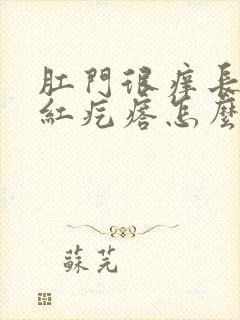 肛門很癢長
紅疙瘩怎麼
蘇芫